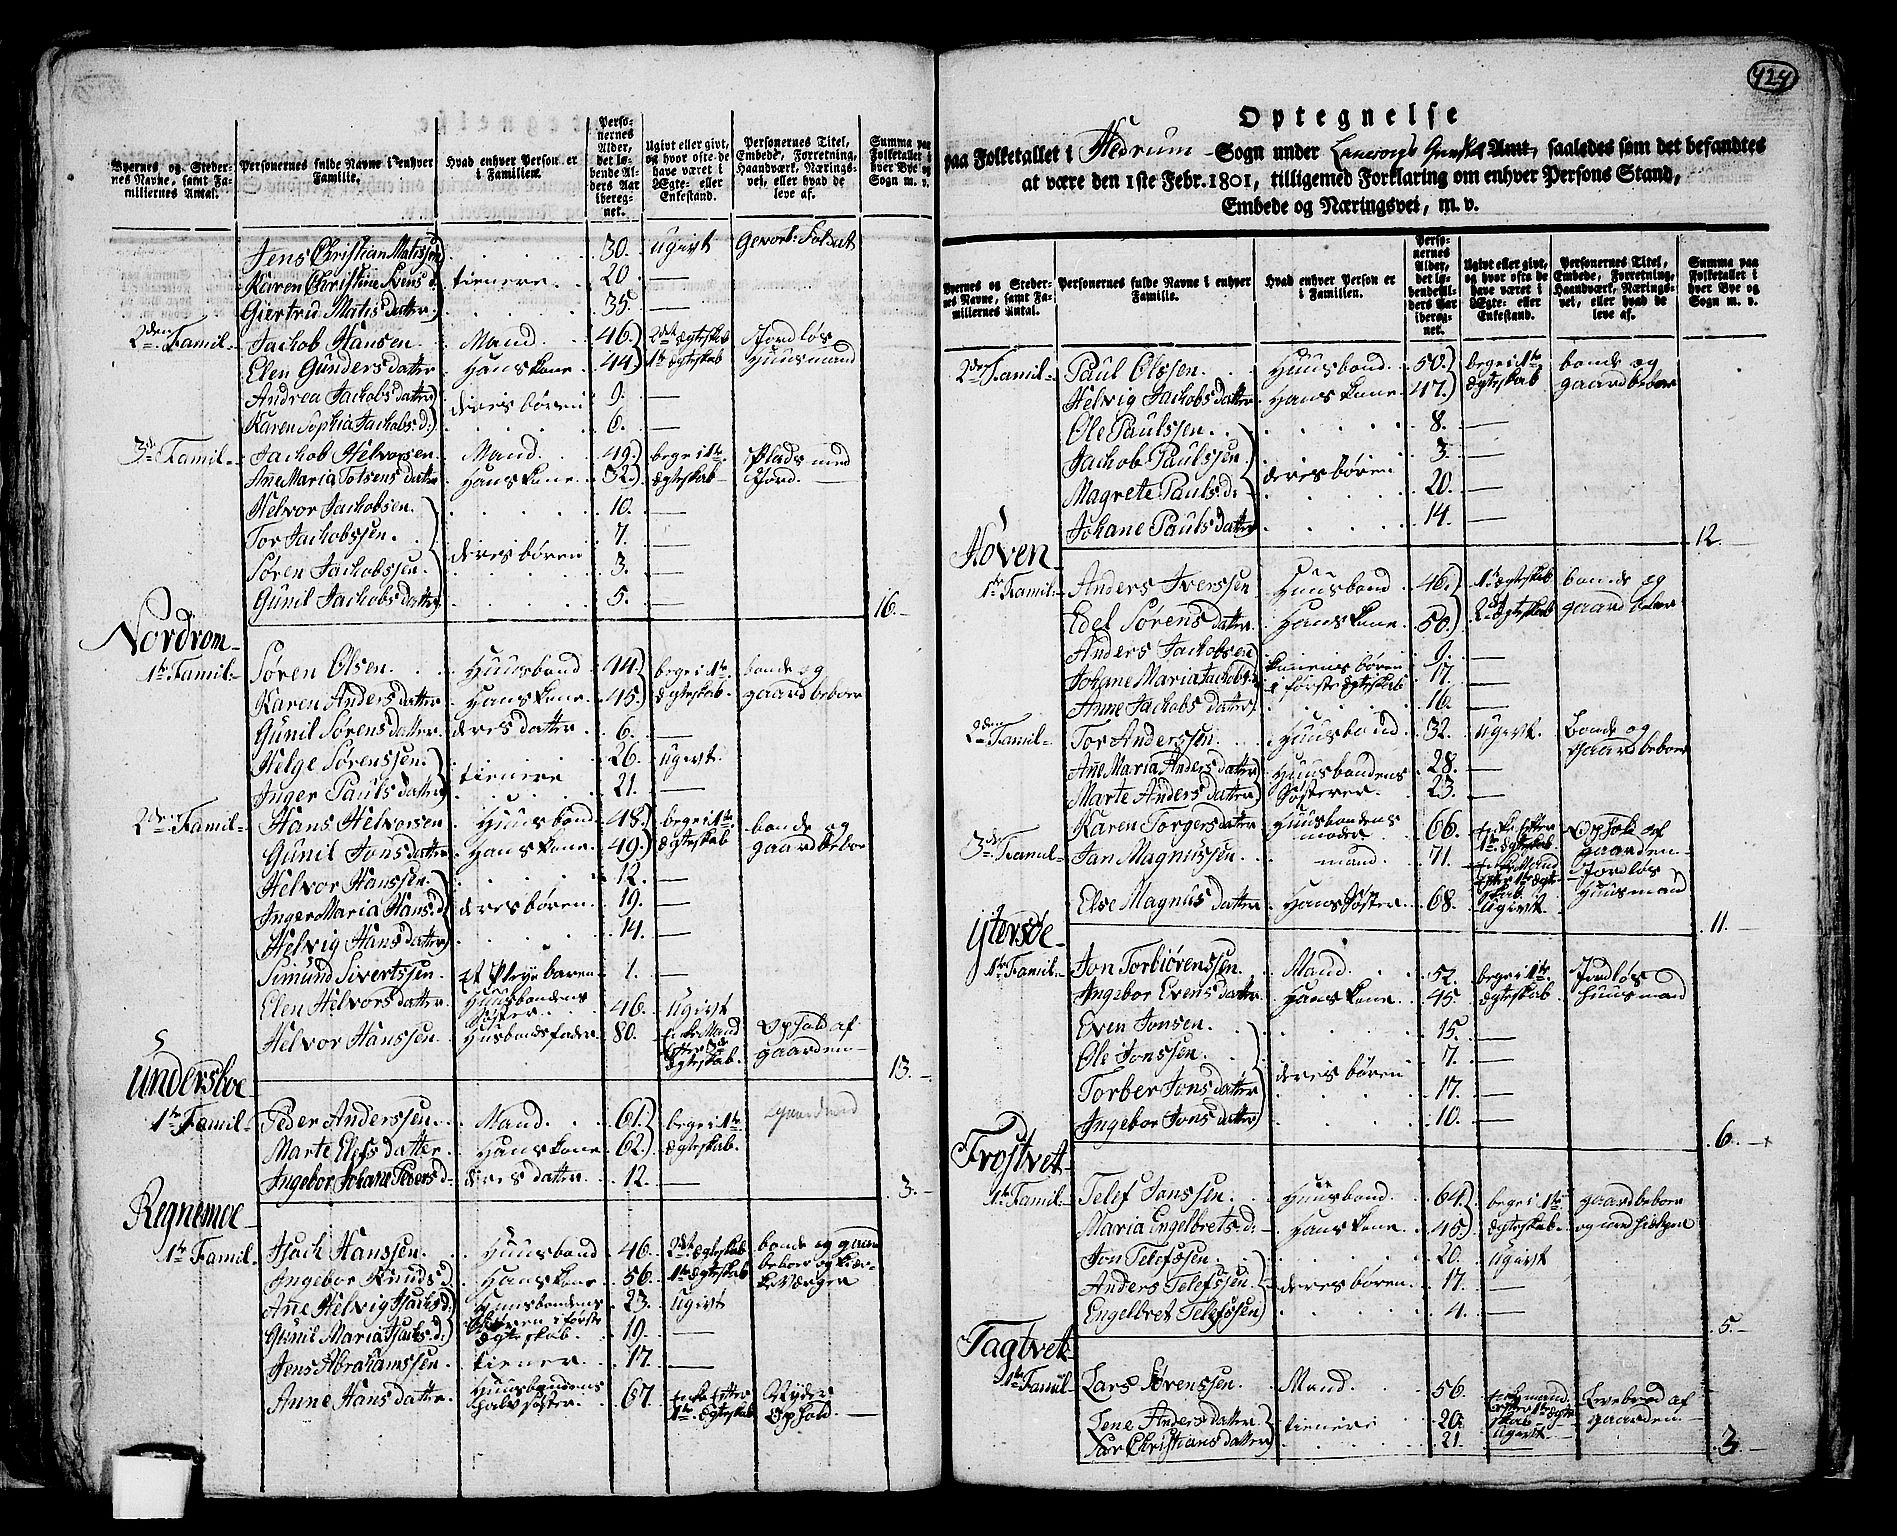 Byernes og Stedernes Navne, samt Familiernes Antal. Personernes fulde Navne i enhver Familie. Hvad enhver Person er i Familien. Personernes Alder, det løbende Alders Aar iberegnet. Ugivt eller givt, og hvor ofte de have været i Ægte- eller Enkestand. Personernes Titel, Embede, Forretning, Haandværk, Næringsvei, eller hvad de leve af. Summa paa Folketallet i hver Bye og Sogn m. v.
Jens Christian Matissen 30. ugivt Gevorb: Soldat
Karen Christine Svens d. tienere 20 —
Giertrud Matis datter 35 —
2den Famil- Jackob Hansen Mand 46. 2det Ægteskab Jordløs
Elen Gunders datter Hans kone 44 1te Ægteskab Huusmand
Andrea Jackobs datter deres børen 9. —
Karen Sophia Jackobs d. 6. —
3de Famil- Jackob Helvorsen Mand 49. begge i 1te Plads med
Ane Maria Tolsens datter Hans kone 52. Ægteskab Jord.
Helvor Jackobsen. 10. —
Tor Jackobssen. 7. —
Søren Jackobssen. deres børen 3. —
Gunil Jackobs datter 5. — 16.
Nordrom
1te Famil- Søren Olsen Huusbond 44 begge i 1te bonde og
Karen Anders datter Hans kone 45. Ægteskab. gaardbeboer
Gunil Sørens datter deres datter 6. —
Helge Sørenssen. tienere 26. ugivt.
Inger Pauls datter 21. —
2den Famil- Hans Helvorsen Huusbond 48. begge i 1te bonde og
Gunil Jons datter Hans kone 49. Ægteskab gaardbeboer
Helvor Hanssen. 12. —
Inger Maria Hans d deres børen 19. —
Helvig Hans datter 14. —
Simund Sivertssen. et Pleye baren 1. —
Elen Helvors datter Huusbondens Søster 46. Ugivt
Helvor Hanssen Husbonds fader 80. Enke Mand Efter Ægteskab. Ophold af gaarden 13.
Undersboe
1te Famil- Peder Anderssen Mand 61. begge i 1te
Marte Elefs datter Hans kone 62. Ægteskab.
Ingebor Johane Peders d. deres datter 12. — 3.
Regnemoe
1te Famil- Isach Hanssen. Huusbond 46. 2det Ægteskab bonde og gaard
Ingebor Knuds d Hans kone 56. 1te Ægteskab beboer og
Ane Helvig Isachs d. Huusbondens 23. Ugivt
Gunil Maria Isachs d. børen i første Ægteskab. 19. —
Jens Abrahamssen tiener 17 —
Anne Hans datter Huusbondens halvsøster. 67 Enke Efter 1te Ægteskab Nyder Ophold.
424
Optegnelse
paa Folketallet i Hedrum Sogn under Laurvigs Grevskab Amt, saaledes som det befandtes
at være den 1ste Febr. 1801, tilligemed Forklaring om enhver Persons Stand,
Embede og Næringsvei, m. v.
Byernes og Stedernes Navne, samt Familiernes Antal. Personernes fulde Navne i enhver Familie. Hvad enhver Person er i Familien. Personernes Alder, det løbende Alders Aar iberegnet. Ugivt eller givt, og hvor ofte de have været i Ægte- eller Enkestand. Personernes Titel, Embede, Forretning, Haandværk, Næringsvei, eller hvad de leve af. Summa paa Folketallet i hver Bye og Sogn m. v.
2den Famil- Paul Olssen. Huusbond 50. begge i 1te bonde og
Helvig Jackobs datter Hans kone 47. Ægteskab gaardbeboer
Ole Paulssen. 8. —
Jackob Paulssen 3. —
Magrete Pauls d. deres børen 20. —
Johane Pauls datter 14. — 12.
Hoven
1te Famil- Anders Iverssen Huusbond 46. 1te Ægteskab bonde og
Edel Sørens datter Hans kone 50. 2det Ægteskab gaardbeboer
Anders Jackobsen konens børen 9. —
Johane Maria Jackobs d. i første Ægteskab 17. —
Anne Jackobs datter 16. —
2den Famil- Tor Anderssen. Huusbond 32. Ugivt. bonde og gaardbeboer
Ane Maria Anders datter Huusbondens 28. —
Marte Anders datter Søsterer 23. —
Karen Torgers datter Huusbondens moder 66. Enke Efter 1te Ægteskab Ophold af gaarden
3de Famil- Jan Magnussen mand. 71. Enke Mand Efter 1te Ægteskab Jordløs Huusmand
Else Magnus datter Hans Søster 68. Ugivt. 11.
Ytersøe
1te Famil- Jon Torbiørenssen. Mand. 52. begge i 1te Jordløs
Ingebor Evens datter Hans kone 45 Ægteskab. huusmand
Even Jonsen. 15. —
Ole Jonssen. 7. —
Torber Jons datter deres børen 17. —
Ingebor Jons datter 10. — 6.
Frostvet
1te Famil- Telef Jonssen. Huusbond. 64. begge i 1te gaardbeboer
Maria Engelbrets d. Hans kone. 45 Ægteskab.
Jon Telefssen. 20. Ugivt
Anders Telefssen deres børen 17. —
Engelbret Telefssen 4. — 5.
Tagtvet
1te Famil- Lars Sørenssen. Mand. 56. Enkemand Efter 1te Ægteskab Levebrød af gaarden
Lene Anders datter tieneri 20. Ugivt.
Christians datter 21. — 3